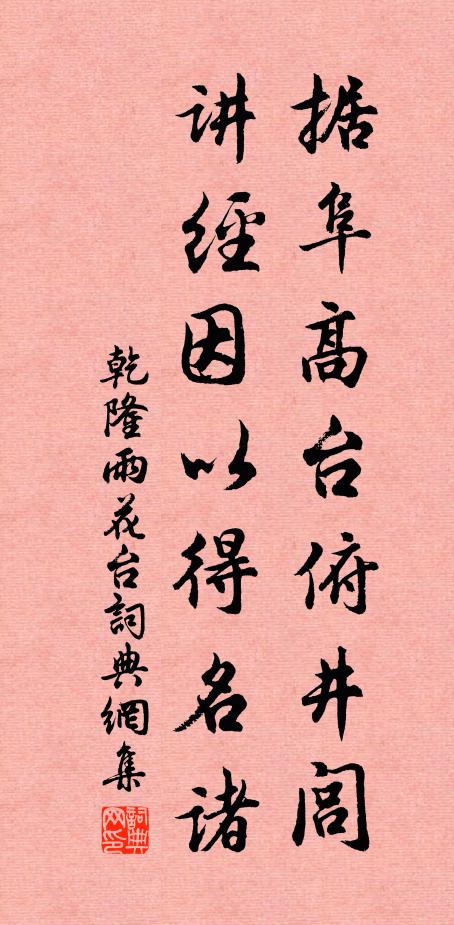 据阜高台俯井闾
讲经因以得名诸
乾隆雨花台詞典網集
詞典网印